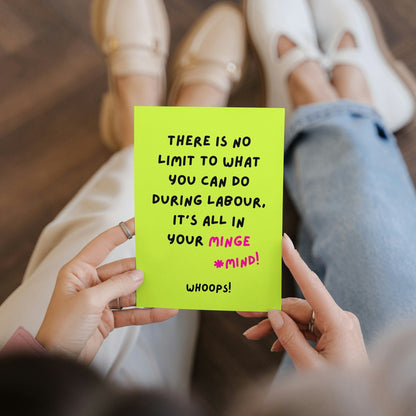 THERE IS NO
LIMIT TO WHAT
YOU CAN DO
DURING LABOUR,
IT'S ALL IN
YOUR MINGE
*MIND!
WHOOPS!